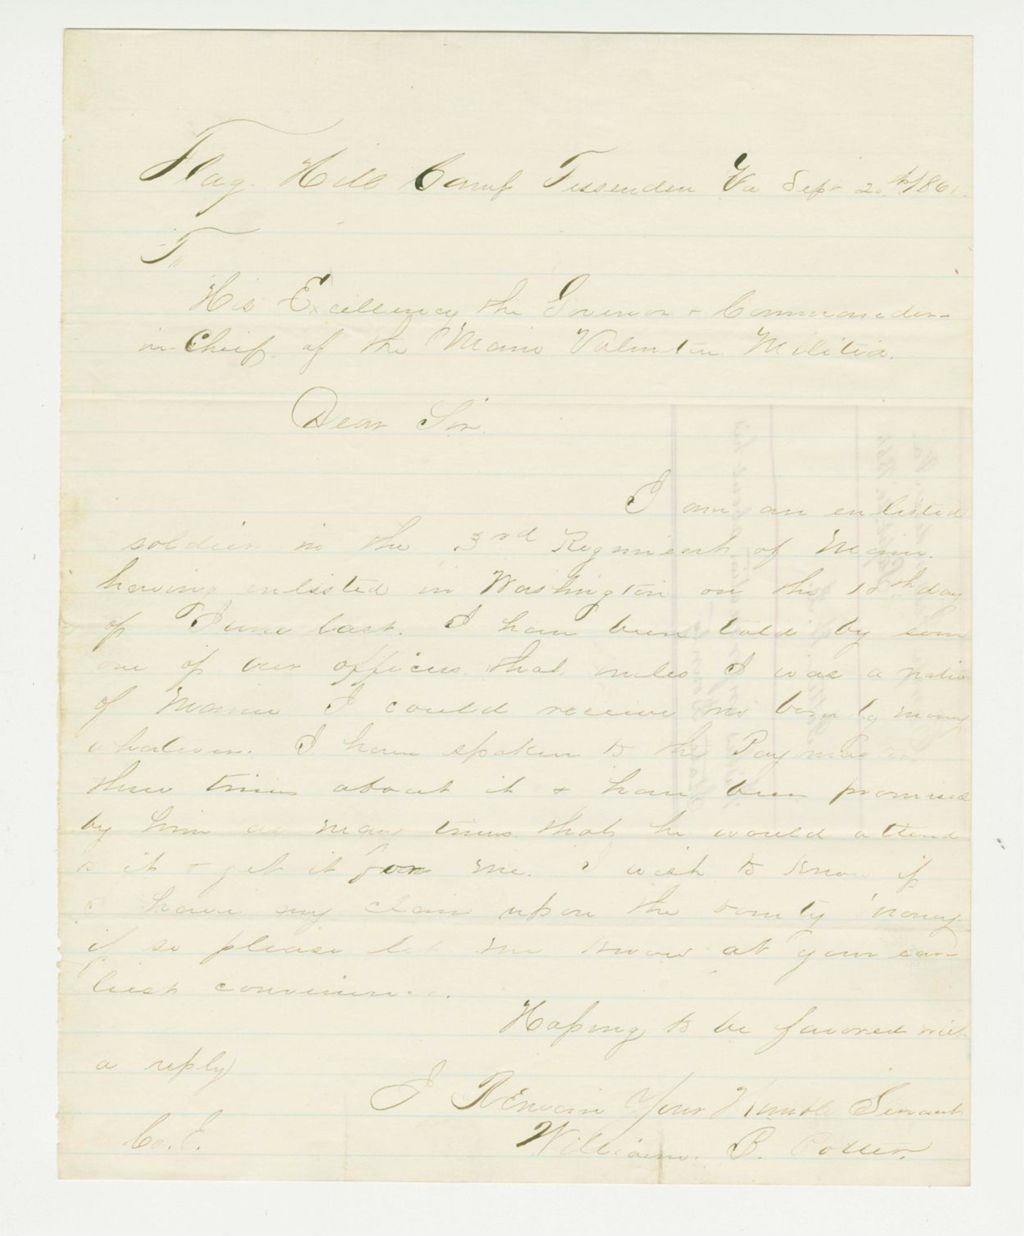 Flag Hill Camp Fessenden Va Sept 20th 1861
To
His Excellency the Govenor & Commander-
in Chief of the Maine Volunteer Militia.
Dear Sir
I am an enlisted
soldier in the 3rd Regiment of Maine
having enlisted in Washington on the 18th day
of June last. I have been told by some
one of our officers that unless I was a native
of Maine I could receive no bounty money
whatever. I have spoken to the Paymaster
three times about it & have been promised
by him as many times that he would attend
to it & get it for me. I wish to know if
I have any claim upon the bounty money
if so please let me know at your ear-
liest convenience.
Hoping to be favored with
a reply
I Remain Your Humble Servant
Co. E. William. B. Potter.